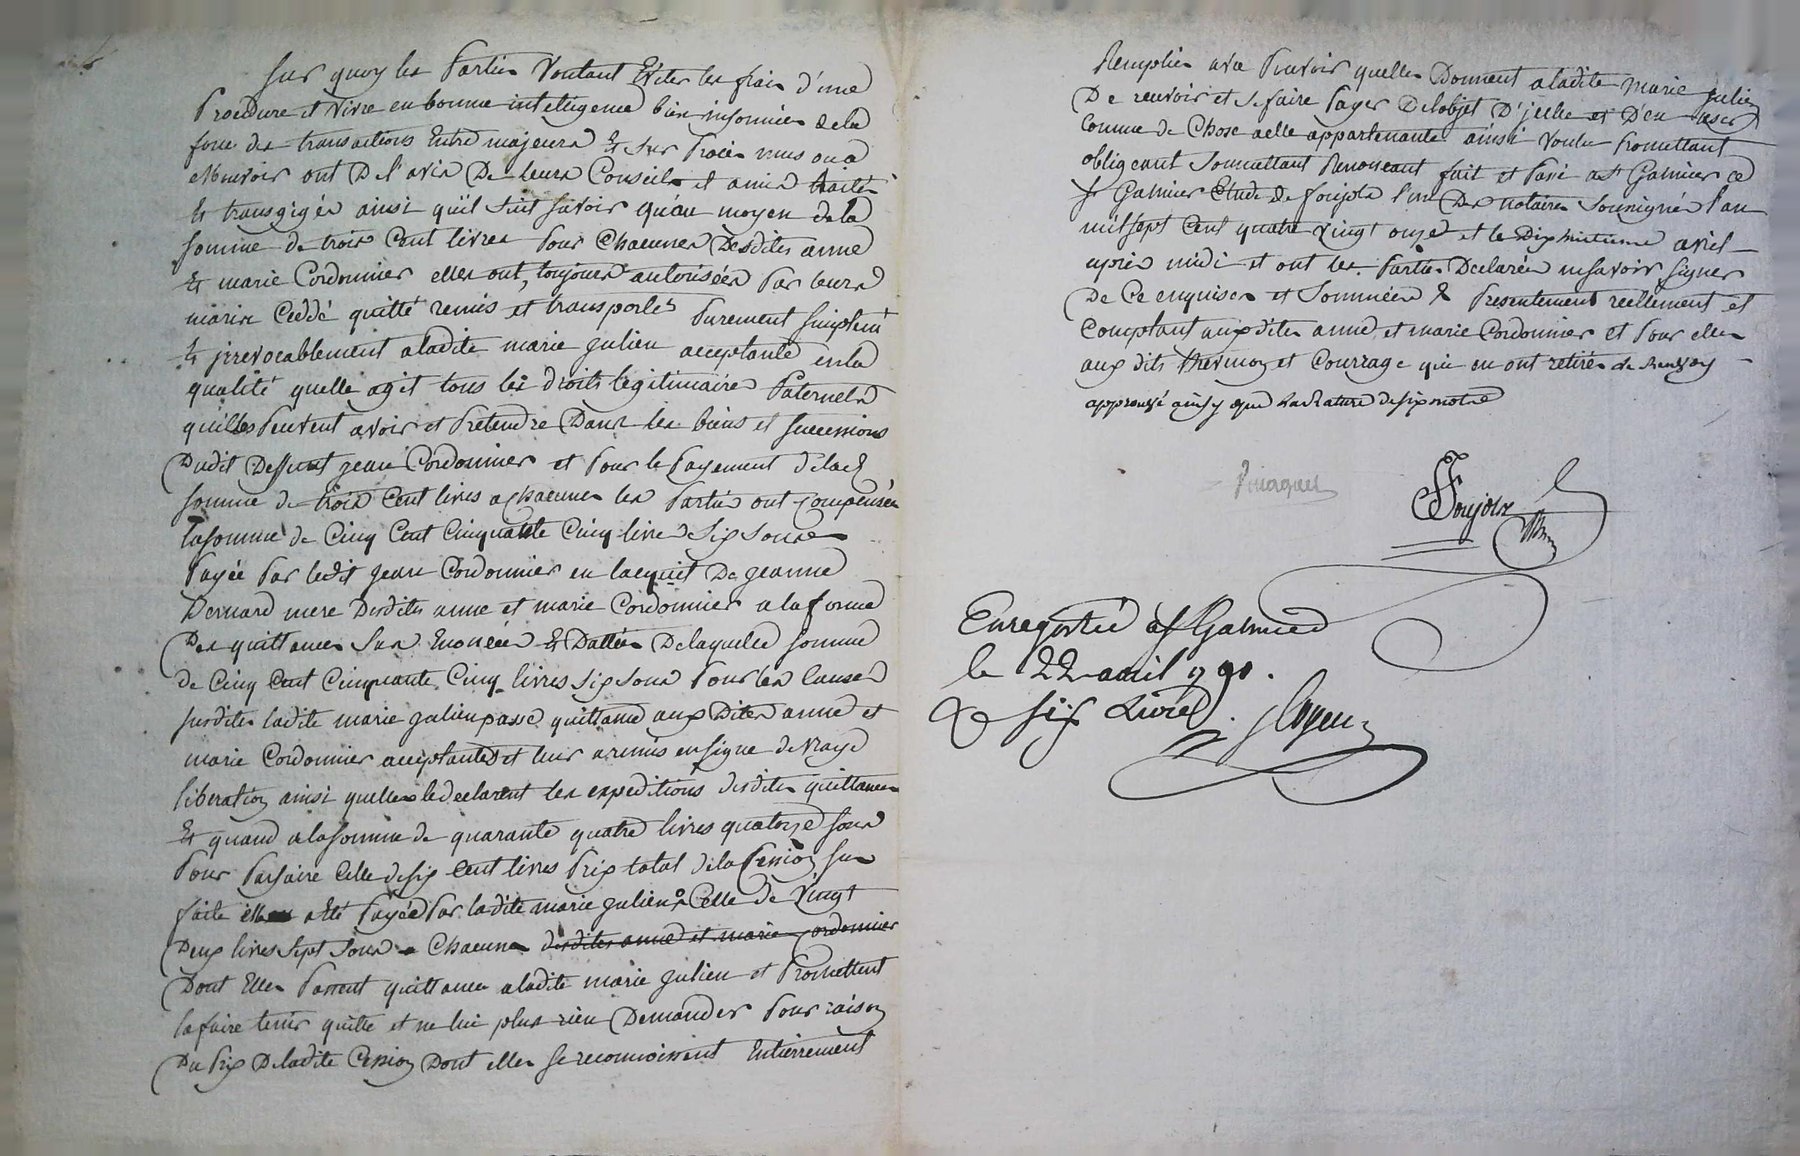 Sur quoy les Parties Voulant Eviter les frais d'une
Procedure et vivre en bonne intelligence bien informées de la
force des transactions Entre majeurs Et sur Procès mus ou a
Mouvoir ont De l'avis De Leurs Conseils et amis traité
Et transigées ainsi quil suit savoir qu'au moyen de la
somme de trois Cent livres Pour Chacunes Desdites anne
Et marie Cordonnier elles ont, toujours autorisées Par leurs
maris Ceddé quitté remis et transporté Purement simplemt
Et jrrevocablement a ladite marie julien acceptante en la
qualité quelle agit tous les droits legitimaires Paternels
quilles Peuvent avoir et Pretendre Dans les biens et successions
Dudit Deffunt jean Cordonnier et Pour le Payement de lad
somme de trois Cent livres a chacunes les Parties ont compensées
la somme de Cinq Cent Cinquante Cinq livres six sous
Payée Par ledit jean Cordonnier en lacquit De jeanne
Bernard mere Desdites anne et marie Cordonnier a la forme
Des quittances Sus Enoncées Et Dattées De laquelle somme
de Cinq Cent Cinquante Cinq livres six sous Pour les Causes
susdites ladite marie julien passe quittance aux Dites anne et
marie Cordonnier acceptantes et leur a remis en signe de vraye
liberation ainsi quelles le declarent les expeditions desdites quittances
Et quand a la somme de quarante quatre livres quatorze sous
Pour Parfaire Celle de six Cent livres Prix total de la Cession sus
faite a Eté Payée Par ladite marie julien a Celle de Vingt
Deux livres Sept Sous a Chacunes desdites anne et marie Cordonnier
Dont Elles Passent quittance a ladite marie julien et Promettent
la faire tenir quitte et ne lui plus rien Demander Pour raison
Du Prix De ladite Cession Dont elles se reconnoissent Entierrement
Remplies avec Pouvoir quelles Donnent a ladite marie julien
De recevoir et se faire Payer De l'objet D'jcelle et D'en user
Comme de Chose a elle appartenante ainsi Voulu Promettant
obligeant Soumettant Renonceant fait et Passé a St Galmier ce
St Galmier Etude De foujols l'un Des notaires Soussignés l'an
mil sept Cent quatre Vingt onze et le Dix huitieme avril
après midi et ont les Parties Declarées ne savoir signer
De Ce enquises et Sommées & Presentement reellement et
Comptant aux dites anne et marie Cordonnier et Pour elles
aux dits et Courrage qui en ont retirés de renvoy
approuvé ainsy que la Rature de six mots
Foujols
Enregistré a St Galmier
le 22 avril 791.
six Livres.